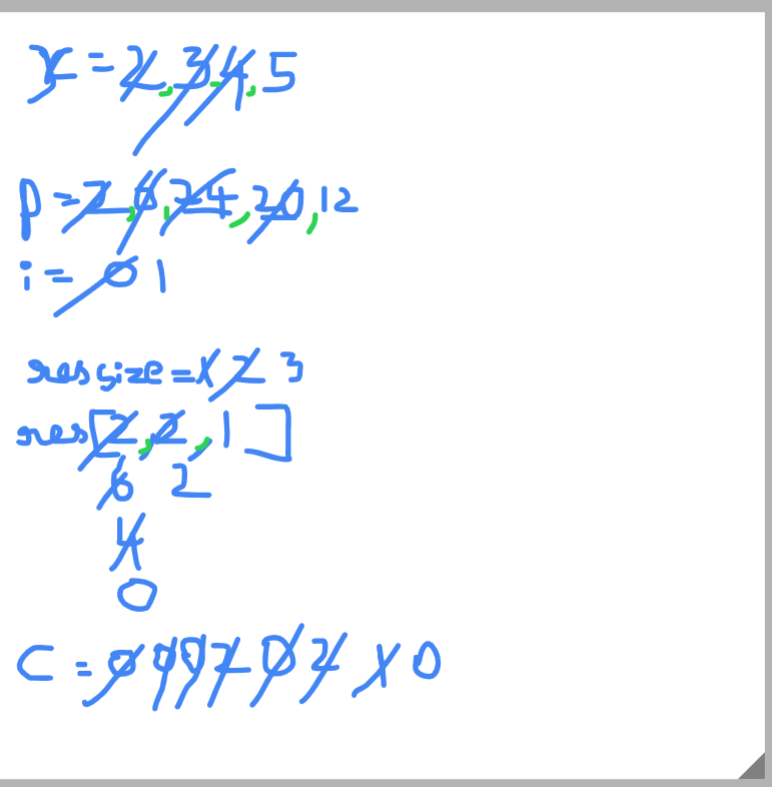 x = 2, 3, 4, 5
p = 2, 6, 24, 20, 12
i = 0 1
res size = 1 2 3
res [2, 2, 1]
6 2
4
0
C = 0 0 0 2 0 2 1 0